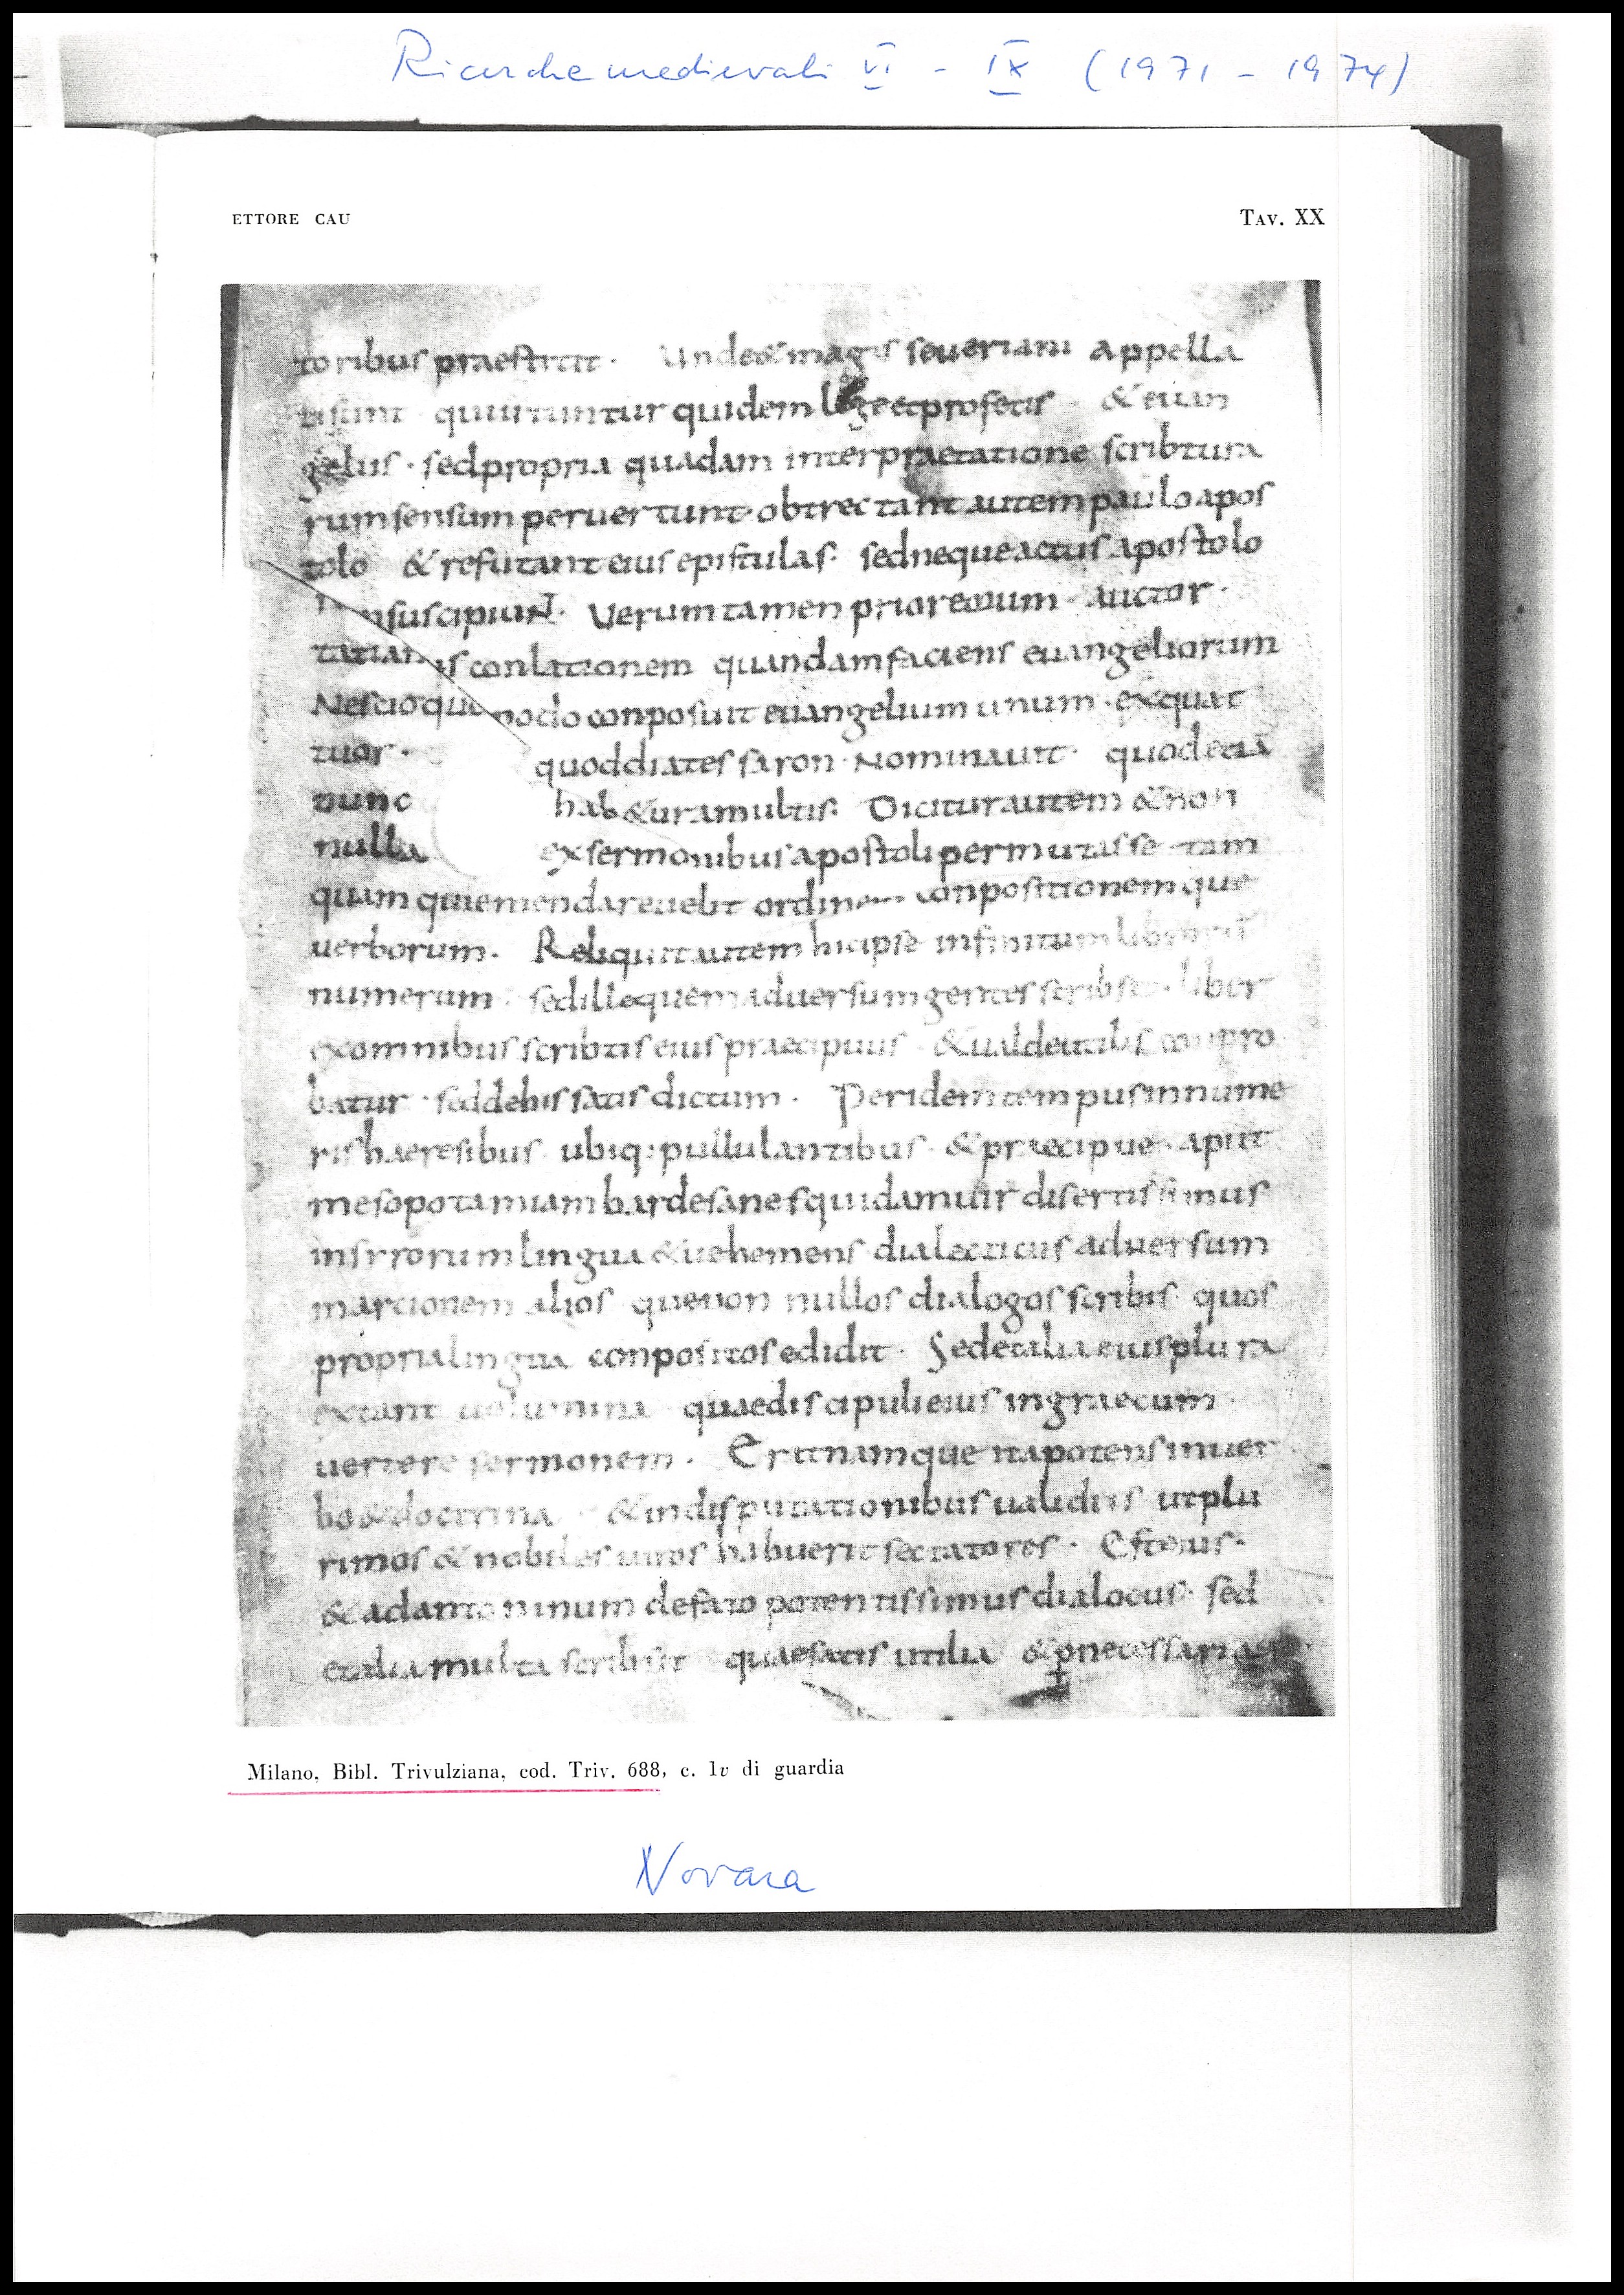 Ricerche medievali VI - IX (1971 - 1974)
ETTORE CAU
TAV. XX
toribus praestitit · Unde & magis seueriani appella
ti sunt qui utuntur quidem lege et profetis & euan
geliis · sed propria quadam interpraetatione scribtura
rum sensum peruertunt · obtrectant autem paulo apos
tolo & refutant eius epistulas · sed neque actus apostolo
suscipiunt · Uerum tamen priore eorum auctor ·
tatianus conlationem quandam faciens euangeliorum
Nescio quo modo conposuit euangelium unum · ex quat
tuor · quod diates saron · Nominauit · quod etiā
nunc hab&ur a multis · Dicitur autem & non
nulla ex sermonibus apostoli permutasse tam
quam qui emendare uelit ordinem conpositionemque
uerborum · Reliquit autem hic ipse infinitum librorū
numerum · sed ille quem aduersum gentes scribsit · liber
ex omnibus scribtis eius praecipuus · & ualde utilis conpro
batur · sed de his satis dictum · Per idem tempus innume
ris haeresibus ubiq: pullulantibus · & praecipue · aput
mesopotamiam bardesanes quidam uir disertissimus
in sirorum lingua & uehemens dialecticus aduersum
marcionem alios que non nullos dialogos scribis quos
propria lingua conpositos edidit · Sed et alia eius plura
extant uolumina quae discipuli eius in graecum
uertere sermonem · Erat namque ita potens in uer
bo & doctrina & in disputationibus ualidus ut plu
rimos & nobiles uiros habuerit sectatores · Est eius ·
& ad antoninum de fato potentissimus dialocus · sed
et alia multa scribsit quae satis utilia & necessaria
Milano, Bibl. Trivulziana, cod. Triv. 688, c. 1v di guardia
Novara